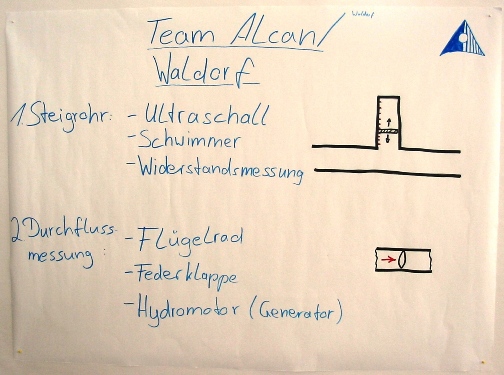 Waldorf
Team Alcan/
Waldorf
1. Steigrohr: - Ultraschall
- Schwimmer
- Widerstandsmessung
2. Durchfluss-
messung: - Flügelrad
- Federklappe
- Hydromotor (Generator)